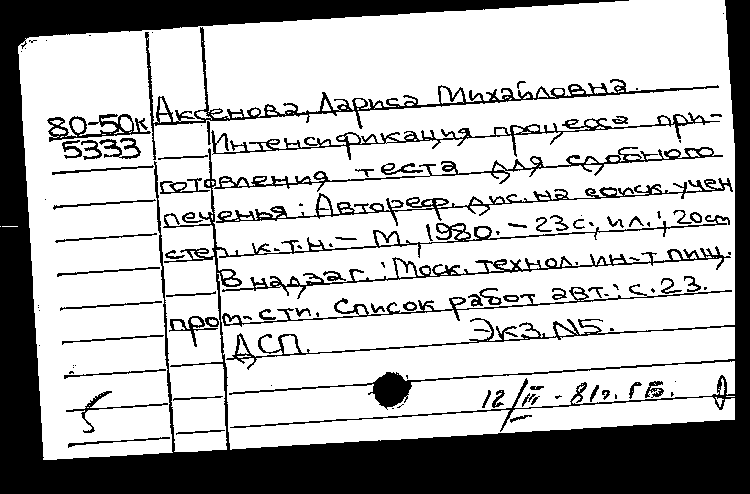 Аксенова, Лариса Михайловна.
80-50к
5333
Интенсификация процесса при-
готовления теста для сдобного
печенья: Автореф. дис. на соиск. учен
степ. к.т.н. - М., 1980. - 23 с., ил.; 20 см
В надзаг.: Моск. технол. ин-т пищ.
пром-сти. Список работ авт.: с. 23.
ДСП. Экз. N5.
12/III - 81г. ГБ.